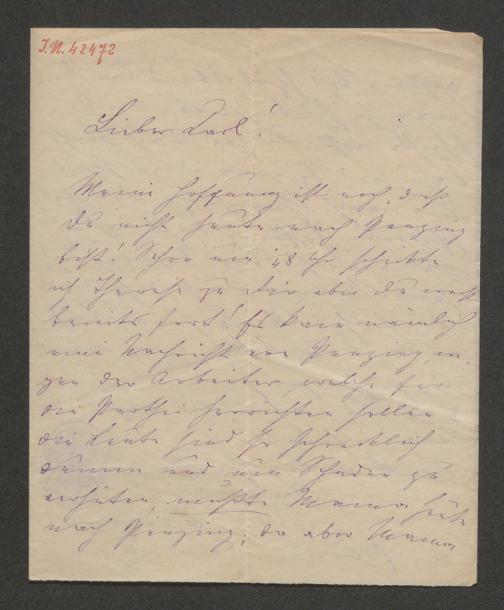 I.N. 42472
Lieber Karl!
Meine Hoffnung ist noch, daß
Du nicht heute nach Penzing
bist! Schon um ½8 Uhr schickte
ich Therese zu Dir aber Du warst
bereits fort! Es kam nämlich
eine Nachricht von Penzing, we-
gen der Arbeiter, welche für
die Parthei herrichten sollen
die Leute sind so schrecklich
dumm und um Schaden zu
verhüten, mußte Mama heute
nach Penzing; da aber Mama